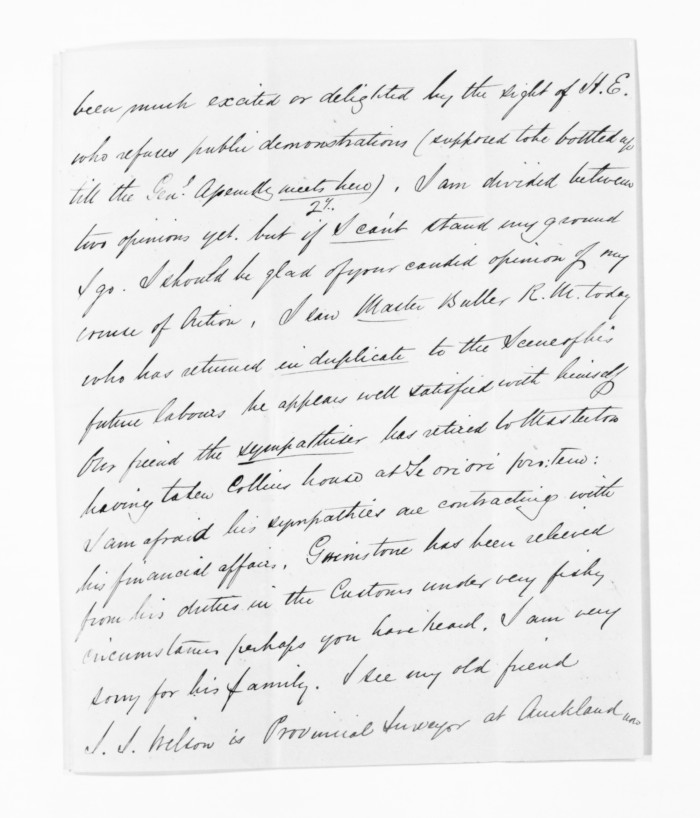 been much excited or delighted by the sight of H.E.
who refuses public demonstrations (supposed to be bottled up
till the Genl. Assembly meets here). I am divided between
two opinions yet. but if I can't stand my ground
I go. I should be glad of your candid opinion of my
course of Action. I saw Master Buller R.M. today
who has returned in duplicate to the Scene of his
future labours he appears well satisfied with himself
Our friend the sympathiser has retired to Masterton
having taken Collins house at Te oriori pro: tem:
I am afraid his sympathies are contracting with
his financial affairs. Grimstone has been relieved
from his duties in the Customs under very fishy
circumstances perhaps you have heard. I am very
sorry for his family. I see my old friend
J. J. Wilson is Provincial Surveyor at Auckland now